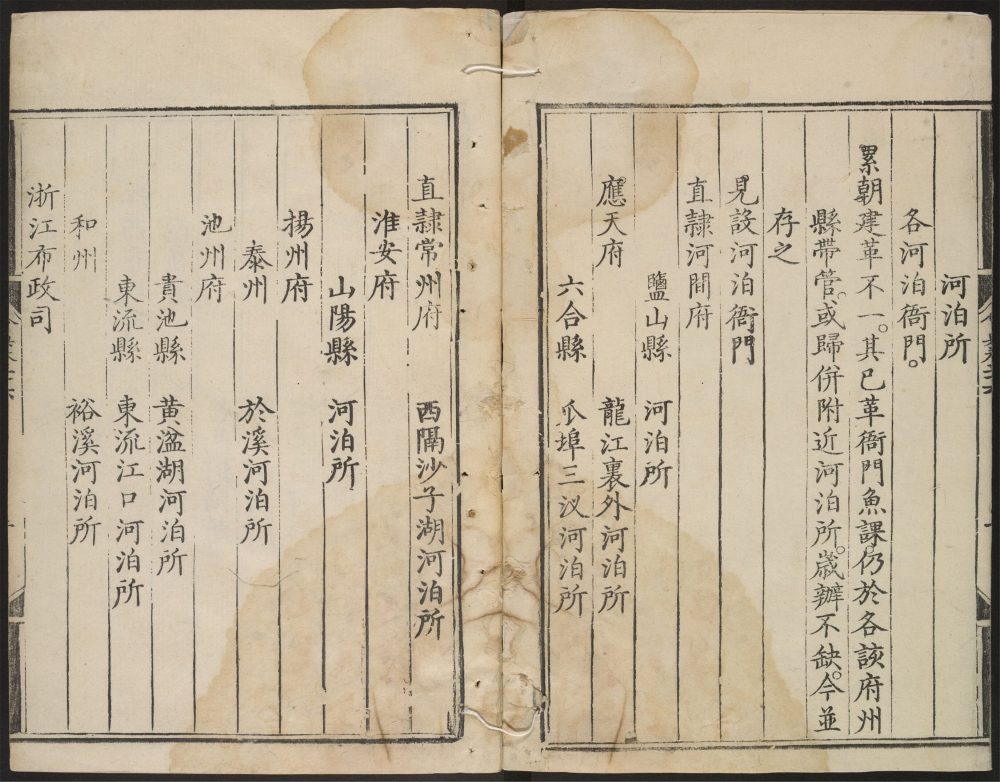 河泊所
各河泊衙門。
累朝建革不一。其已革衙門魚課仍於各該府州
縣帶管。或歸併附近河泊所。歲辦不缺。今並
存之
見設河泊衙門
直隸河間府
鹽山縣 河泊所
應天府 龍江裏外河泊所
六合縣 瓜埠三汊河泊所
直隸常州府 西隔沙子湖河泊所
淮安府
山陽縣 河泊所
揚州府
泰州 於溪河泊所
池州府
貴池縣 黃湓湖河泊所
東流縣 東流江口河泊所
和州 裕溪河泊所
浙江布政司